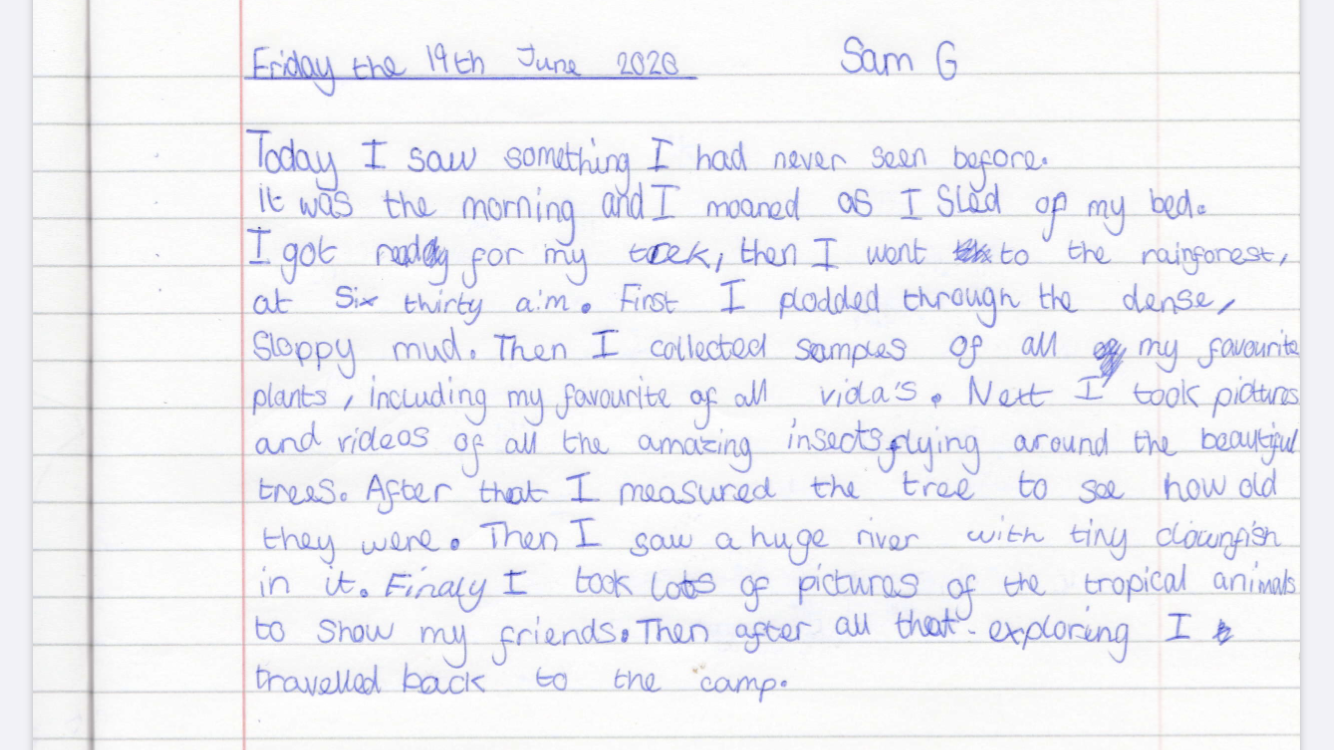 Friday the 19th June 2020 Sam G
Today I saw something I had never seen before.
it was the morning and I moaned as I Sled of my bed.
I got ready for my trek, then I went to the rainforest,
at Six thirty a.m. First I plodded through the dense,
Sloppy mud. Then I collected samples of all my favourite
plants, including my favourite of all viola's. Next I took pictures
and videos of all the amazing insects flying around the beautiful
trees. After that I measured the tree to see how old
they were. Then I saw a huge river with tiny clownfish
in it. Finaly I took lots of pictures of the tropical animals
to show my friends. Then after all that exploring I
travelled back to the camp.